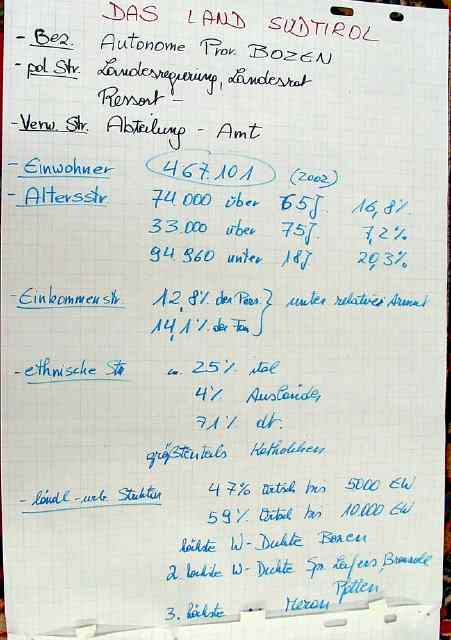 DAS LAND SÜDTIROL
- Bez. Autonome Prov. BOZEN
- pol Str. Landesregierung, Landesrat
Ressort -
- Verw. Str. Abteilung - Amt
- Einwohner 467.101 (2002)
- Altersstr. 74.000 über 65J. 16,8%
33.000 über 75J. 7,2%
94.960 unter 18J 20,3%
- Einkommenstr. 12,8% der Pers. } unter relativer Armut
14,1% der Fam
- ethnische Str ca. 25% ital
4% Ausländer
71% dt.
größtenteils Katholiken
- ländl-urb. Struktur 47% Ortsch bis 5000 EW
59% Ortsch bis 10.000 EW
höchste W-Dichte Bozen
2. höchste W-Dichte Leifers, Branzoll
Pfatten
3. höchste Meran